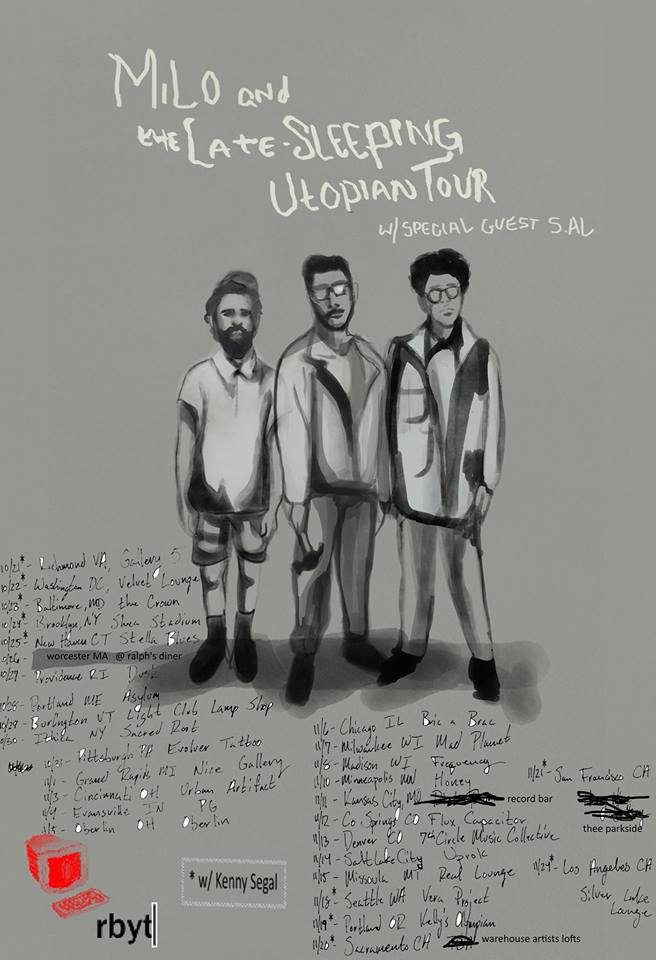 MILO and
the LATE-SLEEPING
UTOPIAN TOUR
W/ SPECIAL GUEST S.AL
10/21* - Richmond VA, Gallery 5
10/22* - Washington DC, Velvet Lounge
10/23* - Baltimore, MD the Crown
10/24* - Brooklyn, NY Shea Stadium
10/25* - New Haven CT Stella Blues
10/26 - worcester MA @ ralph's diner
10/27 - Providence RI Dusk
10/28 - Portland ME Asylum
10/29 - Burlington VT Light Club Lamp Shop
10/30 - Ithica NY Sacred Root
10/31 - Pittsburgh PA Evolver Tattoo
11/1 - Grand Rapids MI Nice Gallery
11/3 - Cincinnati OH Urban Artifact
11/4 - Evansville IN PG
11/5 - Oberlin OH Oberlin
rbyt
* w/ Kenny Segal
11/6 - Chicago IL Bric a Brac
11/7 - Milwaukee WI Mad Planet
11/8 - Madison WI Frequency
11/10 - Minneapolis MN Honey
11/11 - Kansas City, MO record bar
11/12 - Co Springs CO Flux Capacitor
11/13 - Denver CO 7th Circle Music Collective
11/14 - Salt Lake City Uprok
11/15 - Missoula MT Real Lounge
11/18* - Seattle WA Vera Project
11/19* - Portland OR Kelly's Olympian
11/20* - Sacramento CA warehouse artists lofts
11/21* - San Francisco CA
thee parkside
11/24* - Los Angeles CA
Silver Lake
Lounge